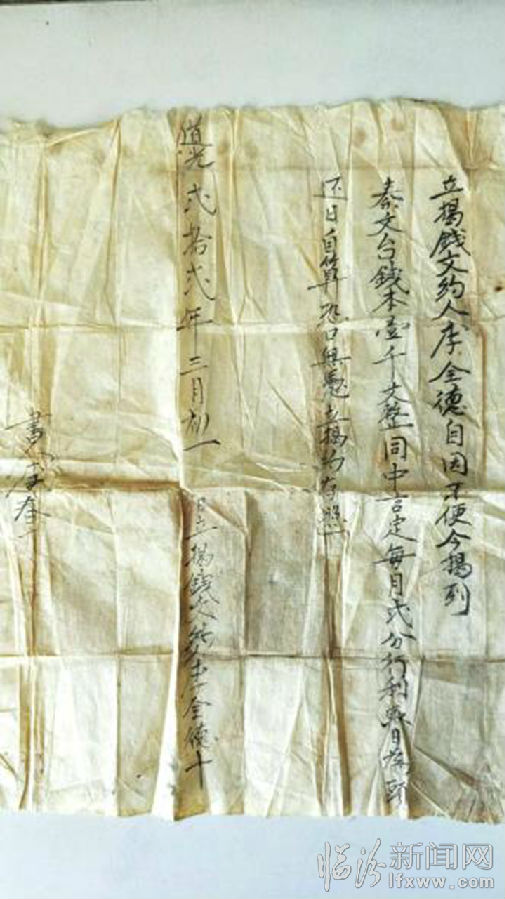 立揭錢文約人李全德自因不便今揭到
秦文台錢本壹千文整同中言定每月弍分行利
还日自算恐口無憑立揭約存照
道光弍拾弍年三月初一日立揭錢文約人李全德十
書
临汾新闻网
lfxww.com